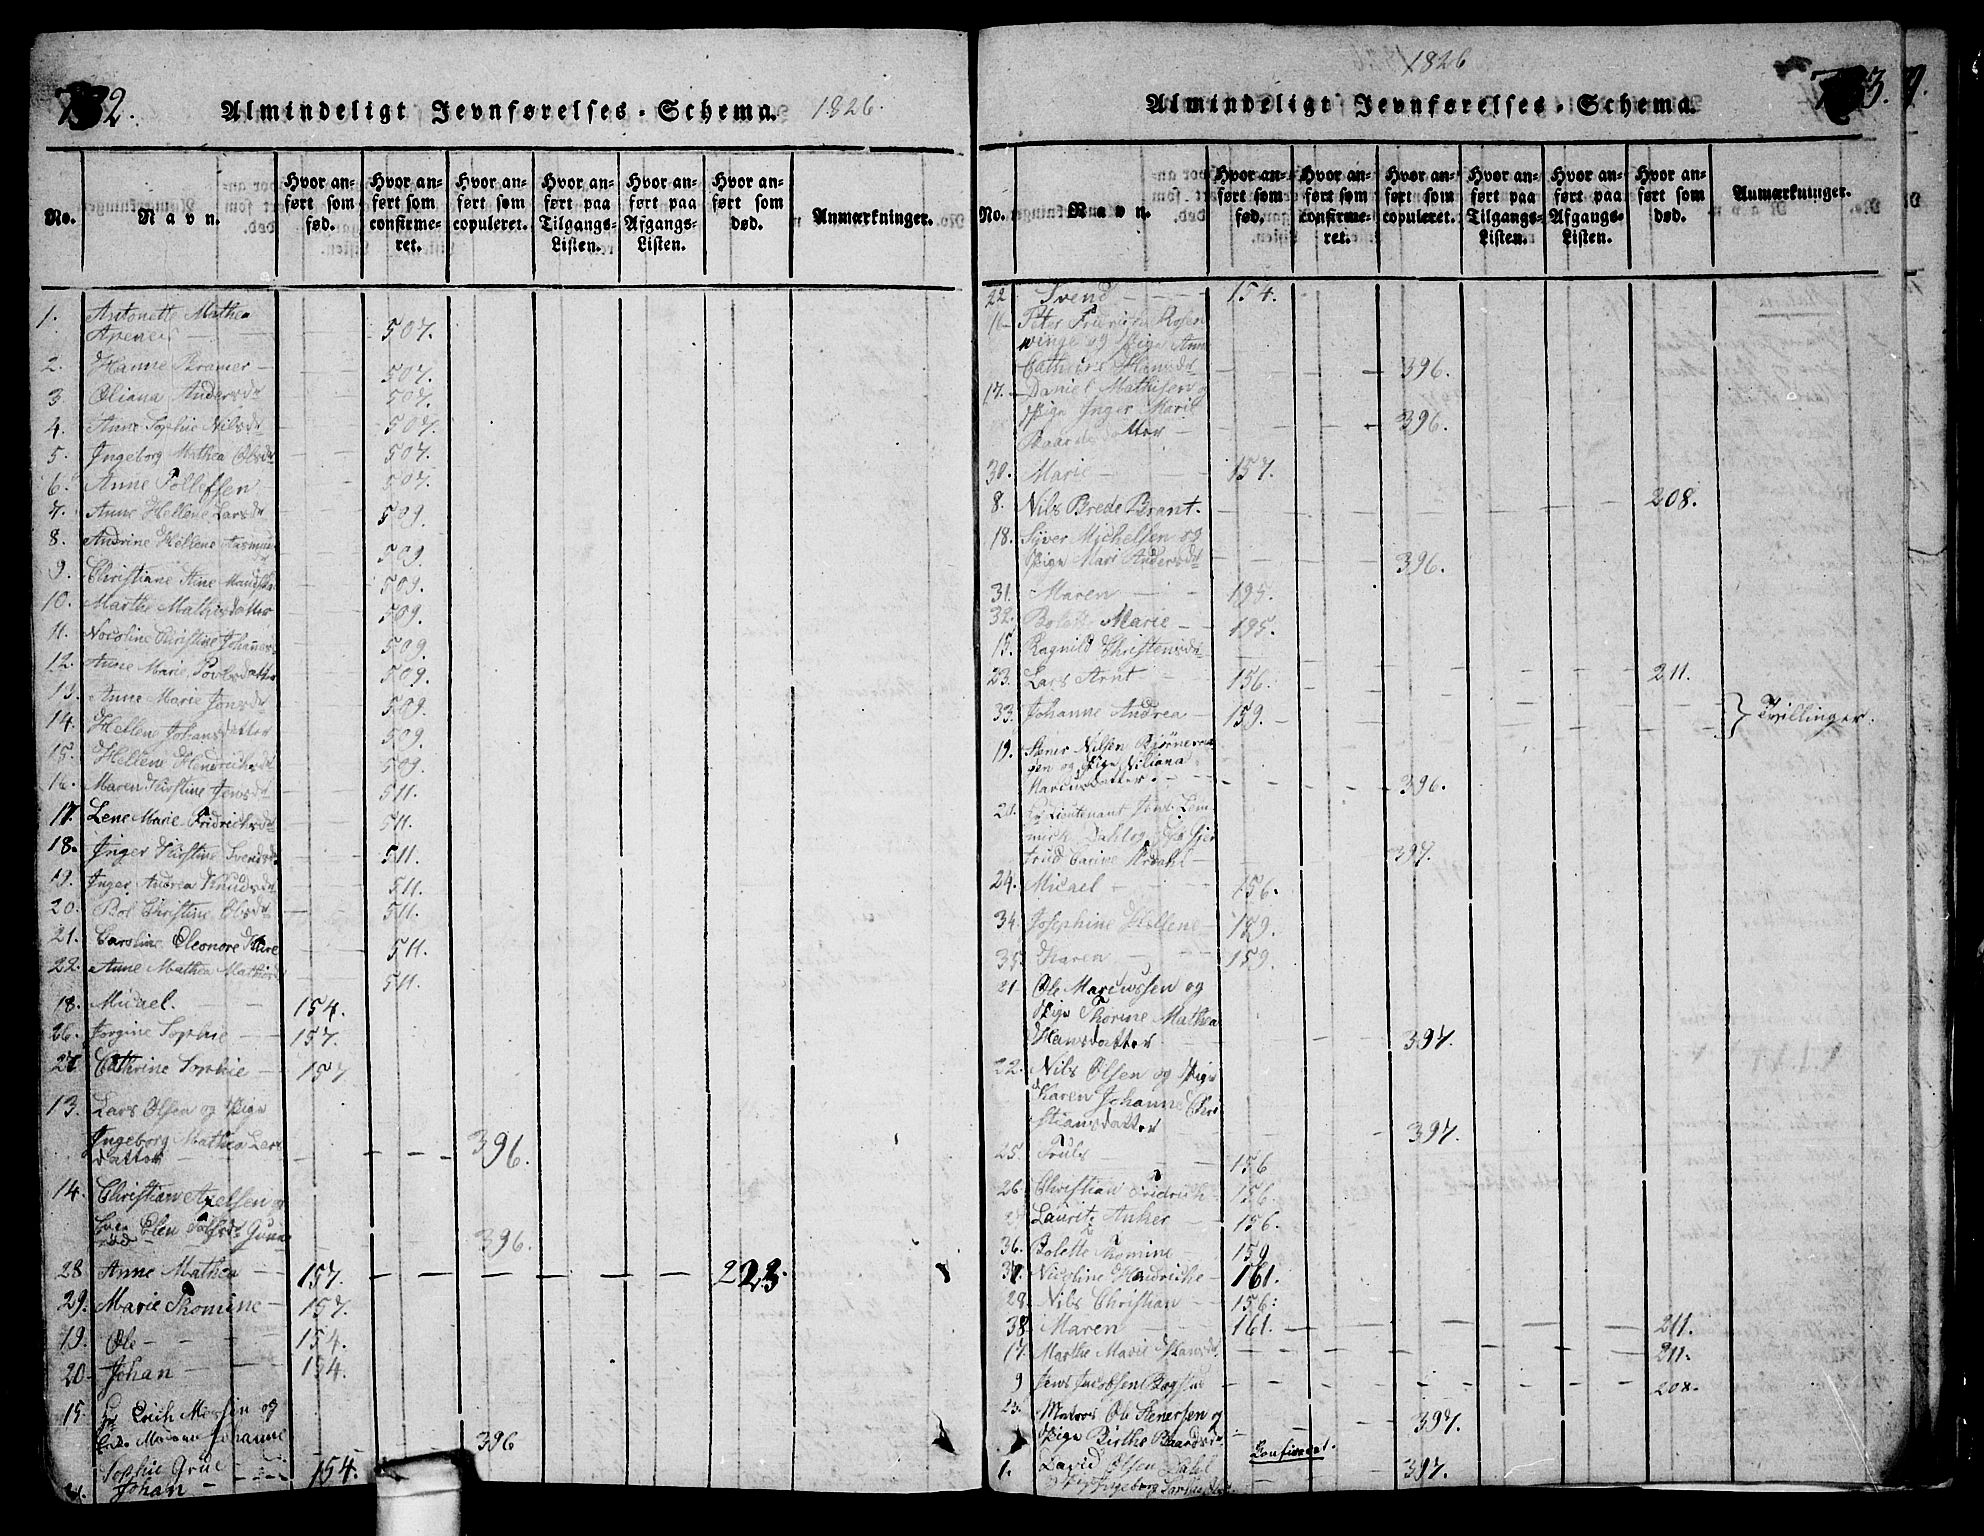 732. Almindeligt Jevnførelses-Schema. 1826.
No. Navn. Hvor anført som fød. Hvor anført som confirmeret. Hvor anført som copuleret. Hvor anført paa Tilgangs-Listen. Hvor anført paa Afgangs-Listen. Hvor anført som død. Anmærkninger.
1. Antonette Mathea
507.
2. Hanne Kramer 507.
3 Oliana Andersdr 507.
4. Anne Sophie Nilsdr 507.
5. Ingeborg Mathea Olsdr 507.
6. Anne Tollefsen 507.
7. Anne Hellene Larsdr 509.
8. Andrine Hellene 509.
9. Christiane Aine 509.
10. Marthe Mathisdatter 509.
11. Nocoline Christine 509.
12. Anne Marie Povelsdatter 509.
13. Anne Marie Jonsdr 509.
14. Hellen Johansdatter 509.
15. Hellene Hendrichsdr 509.
16. Maren Kirstine Jensdr 511.
17. Lene Marie Fridrichsdr 511.
18. Inger Kirstine Svendsdr 511.
19. Inger Andrea Knudsdr 511.
20. Bol Christine Olsdr 511.
21. Caroline Eleonore 511.
22. Anne Mathea 511.
18. Micael. 154.
26. Jorgine Sophie 157.
27 Cathrine Sophie 157
13. Lars Olsen og Pige
Ingeborg Mathea Lars
datter 396.
14. Christian Axelsen og
396.
28 Anne Mathea 157. 223.
29. Marie Thomine 157.
19. Ole 154.
20. Johan 154.
15. Hr Erich og
Johanne 396
Sophie Grue
Johan 154.
1826
733. Almindeligt Jevnførelses-Schema.
No. Navn. Hvor anført som fød. Hvor anført som confirmeret. Hvor anført som copuleret. Hvor anført paa Tilgangs-Listen. Hvor anført paa Afgangs-Listen. Hvor anført som død. Anmærkninger.
22 Svend 154.
16 Peter Friderich Rosen
vinge og Pige Anne
Cathrine Hansdr 396.
17. Daniel Mathisen og
Pige Inger Marie
datter 396.
30. Marie 157.
8. Nils Brede Brant. 208.
18. Syver Michelsen og
Pige Mari Andersdr 396.
31. Maren 195.
32. Bolette Marie 195.
15. Ragnild Christensdr 211.
23. Lars Arnt 156.
33. Johanne Andrea 159. } Tvillinger.
19. Stener Nilsen
og Pige Niliana
Marcusdatter. 396.
20. Pr Lieutenant
397.
24. Micael 156.
34. Josephine Hellene 159.
35. Karen 159.
21 Ole Marcussen og
Pige Thorine Mathea
Hansdatter 397.
22. Nils Olsen og Pige
Karen Johanne Chri
stiansdatter 397.
25. Truls 156
26. Christian Fridrich 156.
27 Lauritz Anker 156.
36. Bolette Thomine 159
37. Nicoline Hendriche 161.
28. Nils Christian 156.
38 Maren 161. 211.
17. Marthe Marie Hansdr 211.
9 Jens Jacobsen 208.
23. Ole Stenersen og
Pige Birthe Baardsdr 397.
Confirmeret.
1. David Olsen Dahl 397.